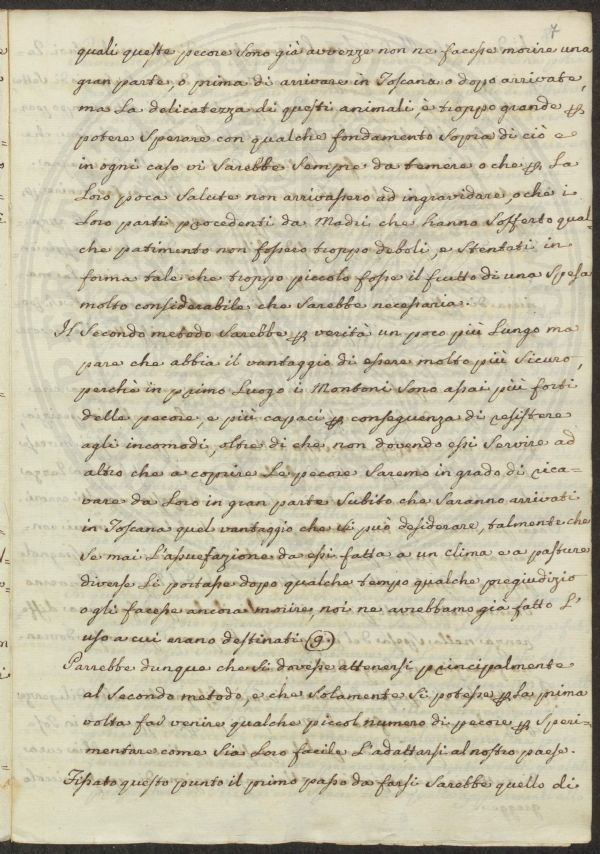 7
quali queste pecore sono già avvezze non ne facesse morire una
gran parte, o prima di arrivare in Toscana o dopo arrivate,
ma la delicatezza di questi animali, è troppo grande ꝑ
potere sperare con qualche fondamento sopra di ciò e
in ogni caso vi sarebbe sempre da temere o che ꝑ la
loro poca salute non arrivassero ad ingravidare, o che i
loro parti procedenti da Madri che hanno sofferto qual-
che patimento non fossero troppo deboli, e stentati in
forma tale che troppo piccolo fosse il frutto di una spesa
molto considerabile che sarebbe necessaria.
Il secondo metodo sarebbe ꝑ verità un poco più lungo ma
pare che abbia il vantaggio di essere molto più sicuro,
perchè in primo luogo i Montoni sono assai più forti
delle pecore, e più capaci ꝑ conseguenza di resistere
agli incomodi, oltre di che non dovendo essi servire ad
altro che a coprire le pecore saremo in grado di rica-
vare da loro in gran parte subito che saranno arrivati
in Toscana quel vantaggio che si può desiderare, talmente che
se mai l'assuefazione da essi fatta a un clima e a pasture
diverse li portasse dopo qualche tempo qualche pregiudizio
o gli facesse ancora morire, noi ne avrebbamo già fatto l'
uso a cui erano destinati (9)
Parrebbe dunque che si dovesse attenersi principalmente
al secondo metodo, e che solamente si potesse ꝑ la prima
volta far venire qualche piccol numero di pecore ꝑ speri-
mentare come sia loro facile l'adattarsi al nostro paese.
Fissato questo punto il primo passo da farsi sarebbe quello di